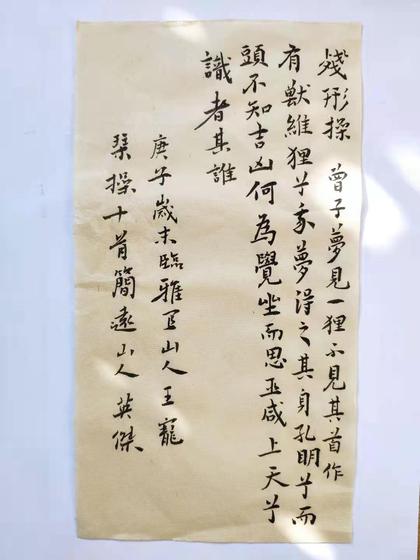 殘形操 曾子夢見一狸不見其首作
有獸維狸兮我夢得之其身孔明兮而
頭不知吉凶何為覺坐而思巫咸上天兮
識者其誰
庚子歲末臨雅宜山人王寵
琴操十首簡遠山人英傑